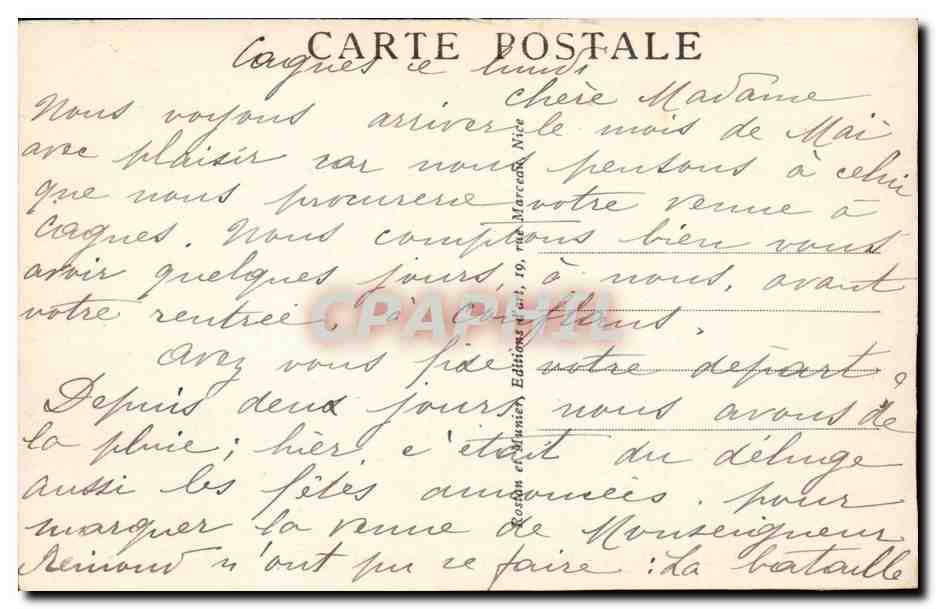 CARTE POSTALE
Cagnes ce lundi
chère Madame
Nous voyons arriver le mois de Mai
avec plaisir car nous pensons à celui
que nous procurere votre venue à
Cagnes. Nous comptons bien vous
avoir quelques jours, à nous, avant
votre rentrée, à Conflans.
Avez vous fixé votre départ ?
Depuis deux jours nous avons de
la pluie ; hier c'était du déluge
aussi les fêtes annoncées pour
marquer la venue de Monseigneur
Rémond n'ont pu se faire : La bataille
Rostan et Munier, Editions d'art, 19, rue Marceau, Nice
CPAPHIL